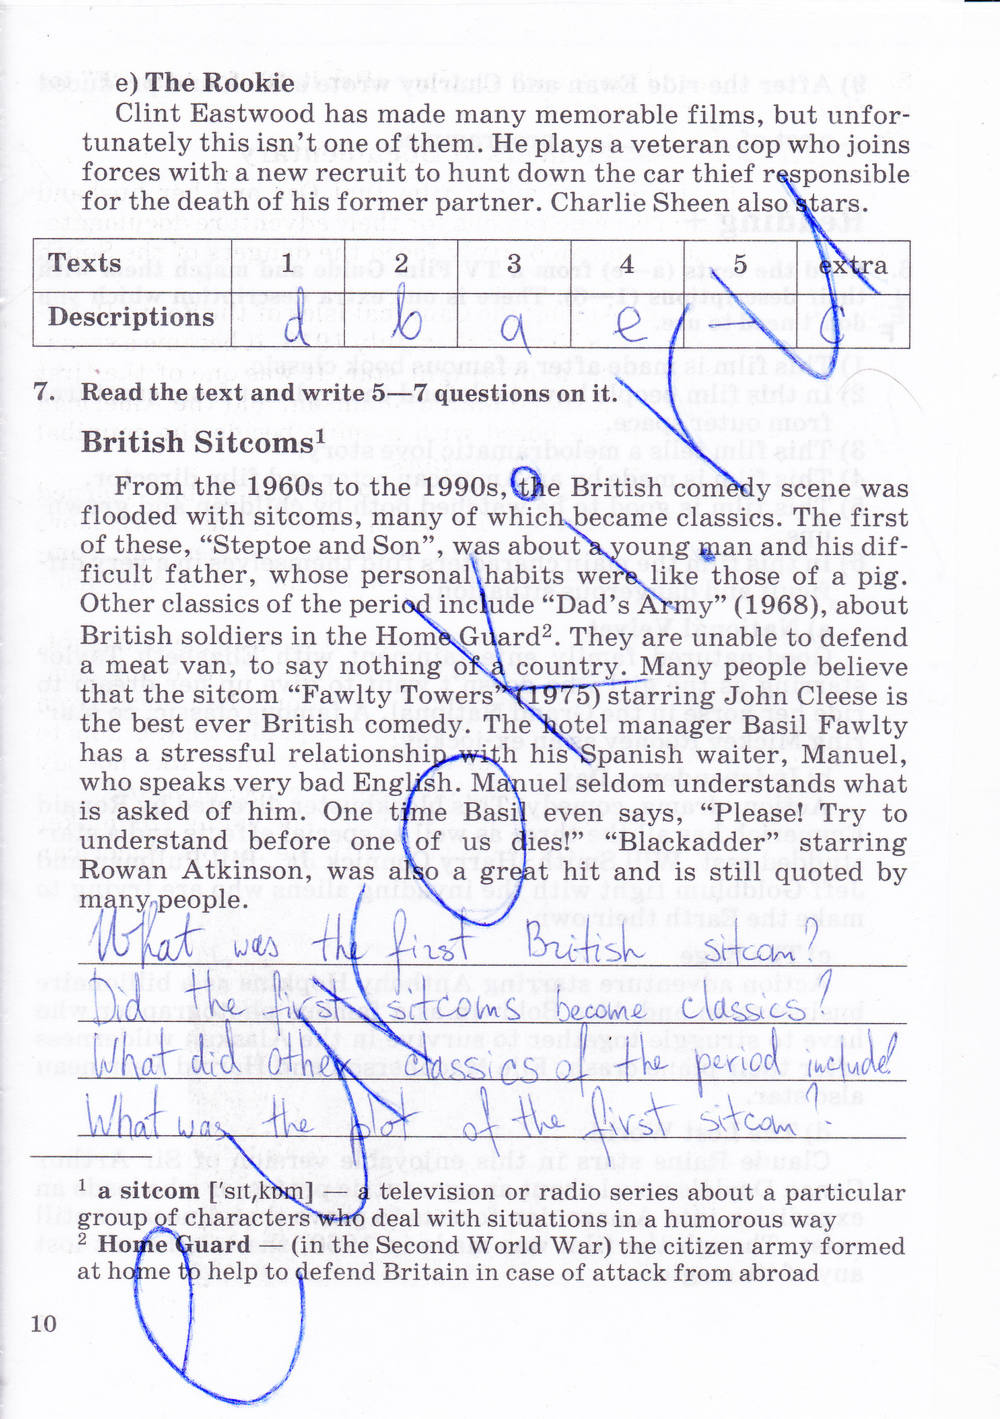 e) The Rookie
Clint Eastwood has made many memorable films, but unfor-
tunately this isn't one of them. He plays a veteran cop who joins
forces with a new recruit to hunt down the car thief responsible
for the death of his former partner. Charlie Sheen also stars.
Texts 1 2 3 4 5 extra
Descriptions d b a e – c
7. Read the text and write 5—7 questions on it.
British Sitcoms¹
From the 1960s to the 1990s, the British comedy scene was
flooded with sitcoms, many of which became classics. The first
of these, “Steptoe and Son”, was about a young man and his dif-
ficult father, whose personal habits were like those of a pig.
Other classics of the period include “Dad's Army” (1968), about
British soldiers in the Home Guard². They are unable to defend
a meat van, to say nothing of a country. Many people believe
that the sitcom “Fawlty Towers” (1975) starring John Cleese is
the best ever British comedy. The hotel manager Basil Fawlty
has a stressful relationship with his Spanish waiter, Manuel,
who speaks very bad English. Manuel seldom understands what
is asked of him. One time Basil even says, “Please! Try to
understand before one of us dies!” “Blackadder” starring
Rowan Atkinson, was also a great hit and is still quoted by
many people.
What was the first British sitcom?
Did the first sitcoms become classics?
What did other classics of the period include?
What was the plot of the first sitcom?
¹ a sitcom [ˈsɪtˌkɒm] — a television or radio series about a particular
group of characters who deal with situations in a humorous way
² Home Guard — (in the Second World War) the citizen army formed
at home to help to defend Britain in case of attack from abroad
10